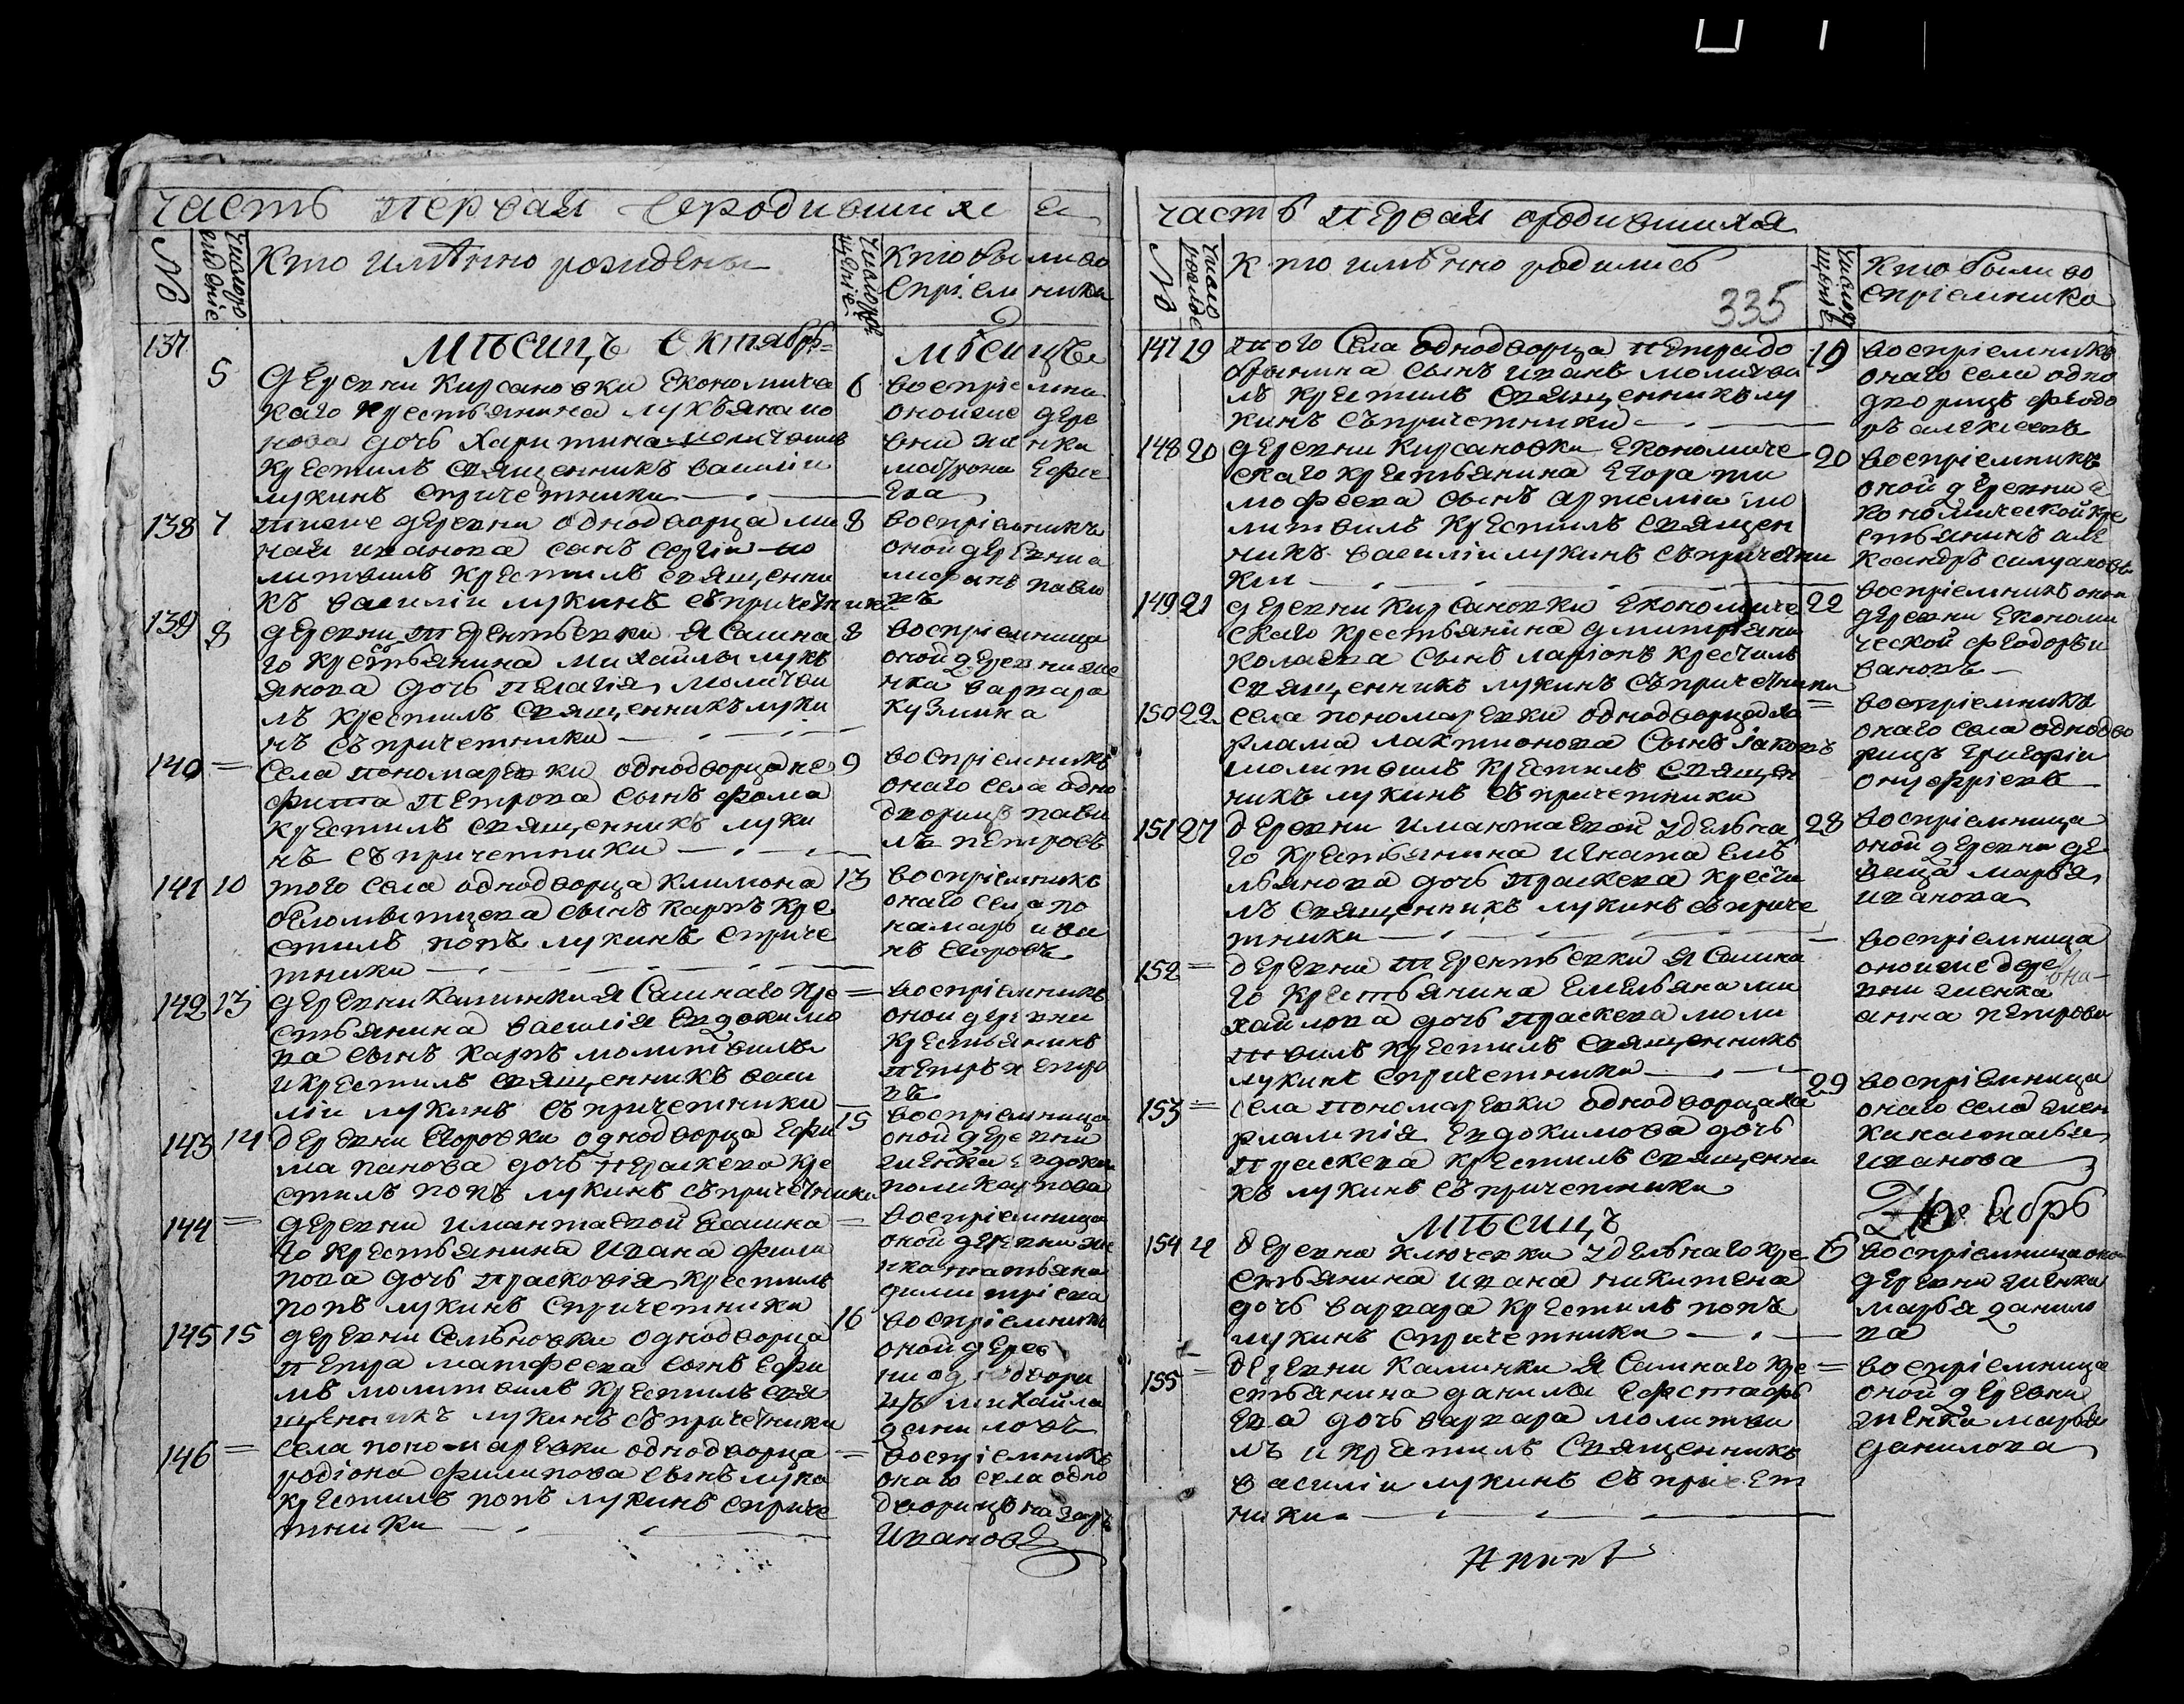 часть первая ородившихся
№
число рождение
Кто имѣнно рождены
число крещение
Кто были воспріемники
мѣсицъ октябрь
137 5 деревни Кирсановки Економиче
скаго крестьянина лукъяна ио
нова дочь харитина молитвилъ
крестилъ священникъ василіи
лукинъ спричетники
6 воспріемни
оноиже дере
вни женка
матрона Ефре
ева
138 7 тоеже деревни однодворца ми
наи иванова сынъ сергіи мо
литвилъ крестилъ священни
къ василіи лукинъ съпричетники
8 воспріемникъ
оной деревни а
павло
въ
139 8 деревни терентьевки Ясашна
го крестьянина михаилы лукъ
янова дочь пелагія молитви
лъ крестилъ священникъ луки
нъ съпричетники
8 воспріемница
оной деревни же
нка варвара
кузмина
140 = Села пономаревки однодворца не
фипта петрова сынъ фома
крестилъ священникъ луки
нъ съпричетники
9 воспріемникъ
онаго села одно
дворицъ паве
лъ петровъ
141 10 того села однодворца климона
сынъ карпъ кре
стилъ попъ лукинъ сприче
тники
13 воспріемникъ
онаго села по
намарь ива
нъ егоровъ
142 13 деревни калинки Ясашнаго кре
стьянина василія Евдокимо
ва сынъ карпъ молитвилъ
и крестилъ священникъ васи
ліи лукинъ съпричетники
= воспріемникъ
оной деревни
крестьянинъ
петръ петро
въ
143 14 деревни егоровки однодворца ефи
ма панова дочь параскева кре
стилъ попъ лукинъ съпричетники
15 воспріемница
оной деревни
женка евдокия
поликарпова
144 = деревни имантаевой Ясашна
го крестьянина ивана фили
пова дочь прасковія крестилъ
попъ лукинъ спричетники
= воспріемница
оной деревни же
нка татьяна
димитріева
145 15 деревни Семьновки однодворца
петра матфеева сынъ ефи
мъ молитвилъ крестилъ свя
щенникъ лукинъ съпричетники
16 воспріемникъ
оной дерев
ни однодвори
цъ михаила
даниловъ
146 = села пономаревки однодворца
родіона филипова сынъ лука
крестилъ попъ лукинъ сприче
тники
= воспріемникъ
онаго села одно
дворицъ назаръ
Ивановъ
часть первая ородившихся
№
число рожде
Кто имѣнно родились
335
число крещение
Кто были во
спріемники
147 19 того села однодворца петра до
брынина сынъ иванъ молитви
лъ крестилъ священникъ лу
кинъ съпричетники
19 воспріемникъ
онаго села одно
дворицъ федо
ръ алексеевъ
148 20 деревни кирсановки економиче
скаго крестьянина егора ти
мофеева сынъ артеміи мо
литвилъ крестилъ священ
никъ василіи лукинъ съпричетни
ки
20 воспріемникъ
оной деревни е
кономической кре
стьянинъ але
ксандръ силуановъ
149 21 деревни кирсановки економиче
скаго крестьянина дмитрія ни
колаева сынъ ларіонъ крестилъ
священникъ лукинъ съпричетники
22 воспріемникъ оной
деревни економи
ческой федоръ и
вановъ
150 22 села пономаревки однодворца ха
рлама лактионова сынъ іаковъ
молитвилъ крестилъ священ
никъ лукинъ съпричетники
= воспріемникъ
онаго села однодво
рицъ григоріи
онуфріевъ
151 27 деревни имантаевой удельна
го крестьянина игната емѣ
льянова дочь праскева крести
лъ священникъ лукинъ съприче
тники
28 воспріемница
оной деревни де
вица марья
иванова
152 = деревни терентьевки Ясашна
го крестьянина емельяна ми
хаилова дочь праскева моли
твилъ крестилъ священникъ
лукинъ спричетники
воспріемница
оноиже дере
вни женка
анна петрова
153 = села пономаревки однодворца ха
рлампія евдокимова дочь
праскева крестилъ священни
къ лукинъ съпричетники
29 воспріемница
онаго села жен
ка настасья
иванова
мѣсицъ Ноябрь
154 4 деревни ключевки удельнаго кре
стьянина ивана никитина
дочь варвара крестилъ попъ
лукинъ спричетники
6 воспріемница оной
деревни женка
марья данило
ва
155 = деревни калинки Ясашнаго кре
стьянина данилы ефстафь
ева дочь варвара молитви
лъ и крестилъ священникъ
василіи лукинъ съпричет
ники
= воспріемница
оной деревни
женка марья
данилова